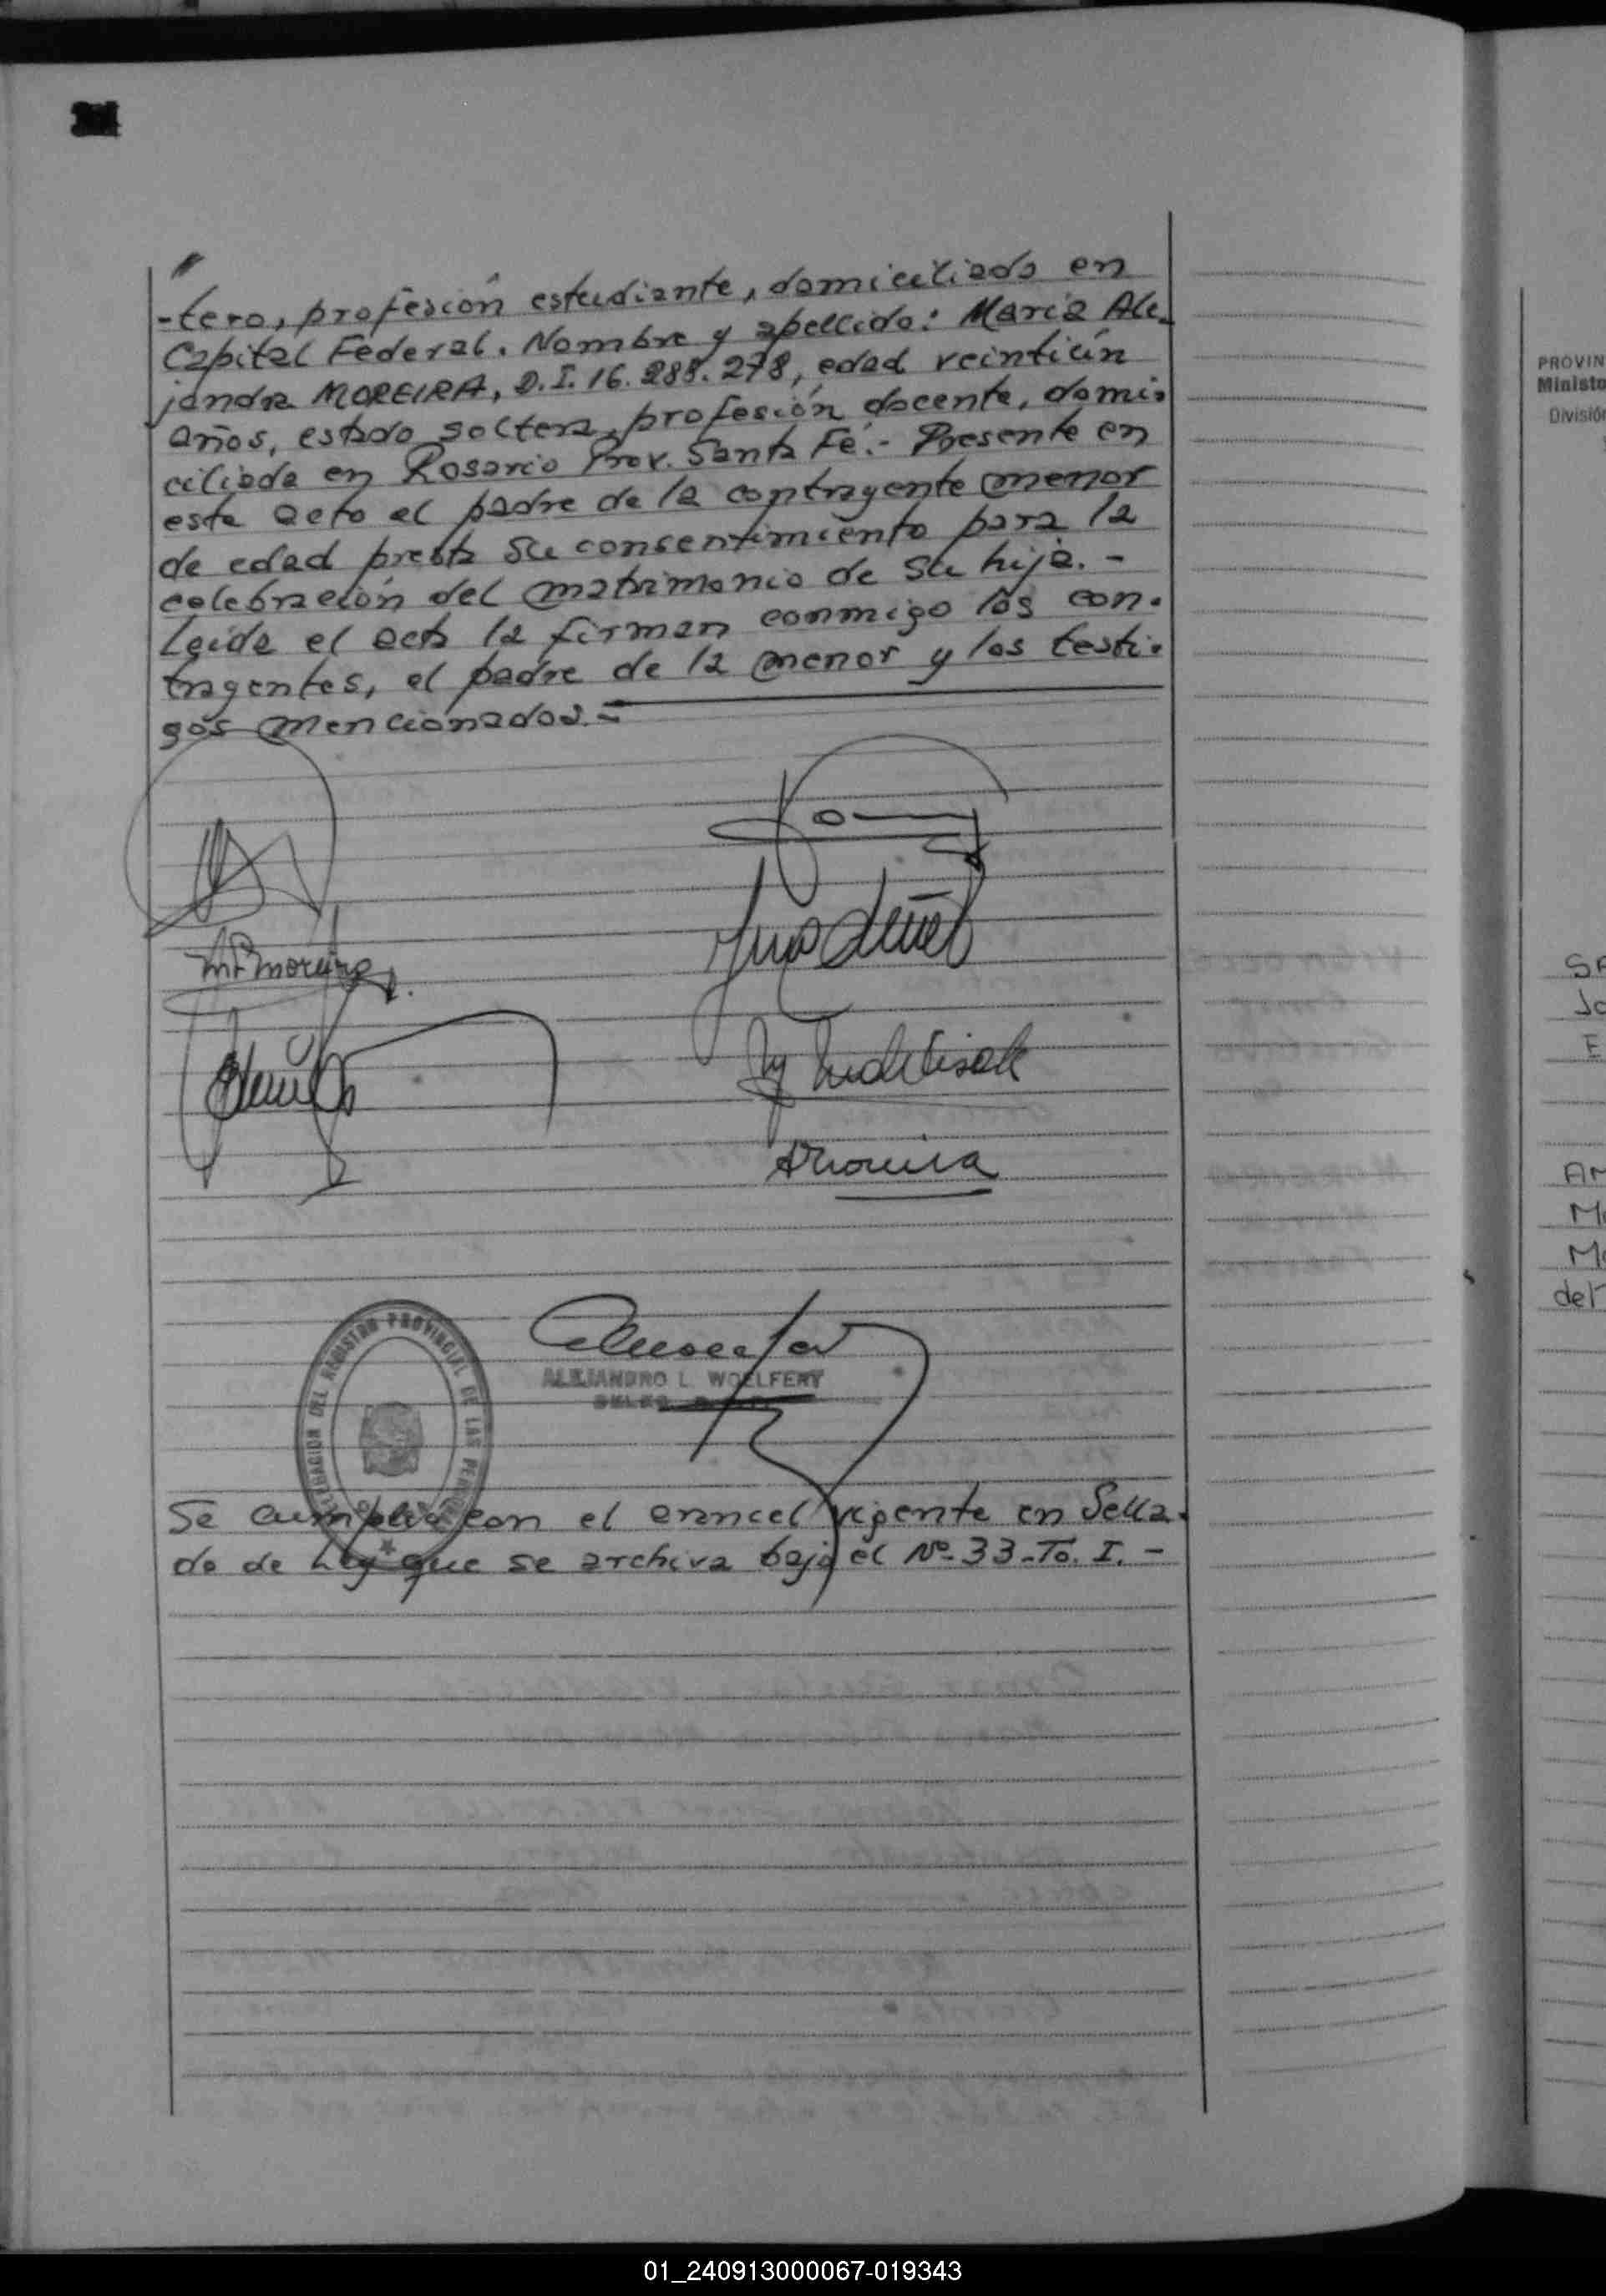 -tero, profesión estudiante, domiciliado en
Capital Federal. Nombre y apellido: María Ale-
jandra MOREIRA, D.I. 16.288.278, edad veintiún
años, estado soltera, profesión docente, domi-
ciliada en Rosario Prov. Santa Fé.- Presente en
este acto el padre de la contrayente menor
de edad presta su consentimiento para la
celebración del matrimonio de su hija.-
Leída el acta la firman conmigo los con-
trayentes, el padre de la menor y los testi-
gos mencionados.=
ALEJANDRO L. WOELFERT
DELEGACION DEL REGISTRO PROVINCIAL DE LAS PERSONAS
Se cumplió con el arancel vigente en Sella-
do de Ley que se archiva bajo el Nº 33-To. I.-
PROVIN
Ministe
División
SA
Jo
E
AM
Ma
Ma
del
01_240913000067-019343